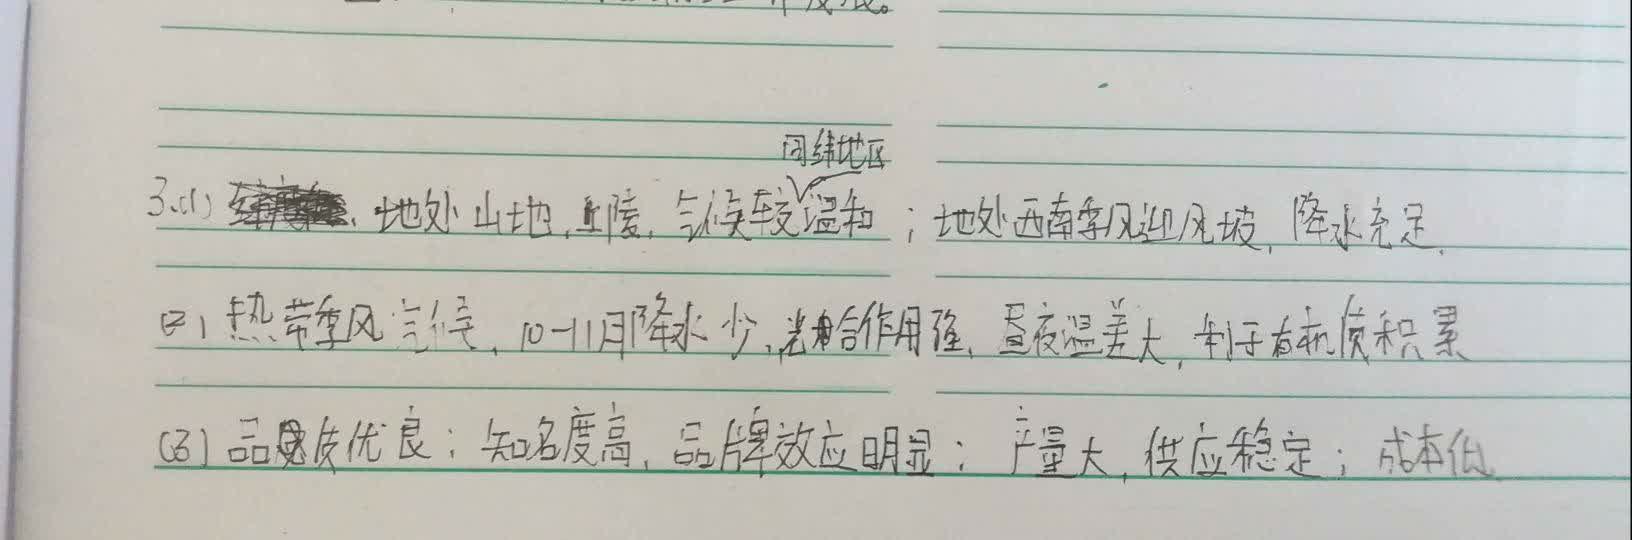 同纬地区
3.(1) 地处山地,丘陵,气候较温和;地处西南季风迎风坡,降水充足.
(2) 热带季风气候,10-11月降水少,光合作用强,昼夜温差大,利于有机质积累
(3) 品质优良;知名度高,品牌效应明显;产量大,供应稳定;成本低